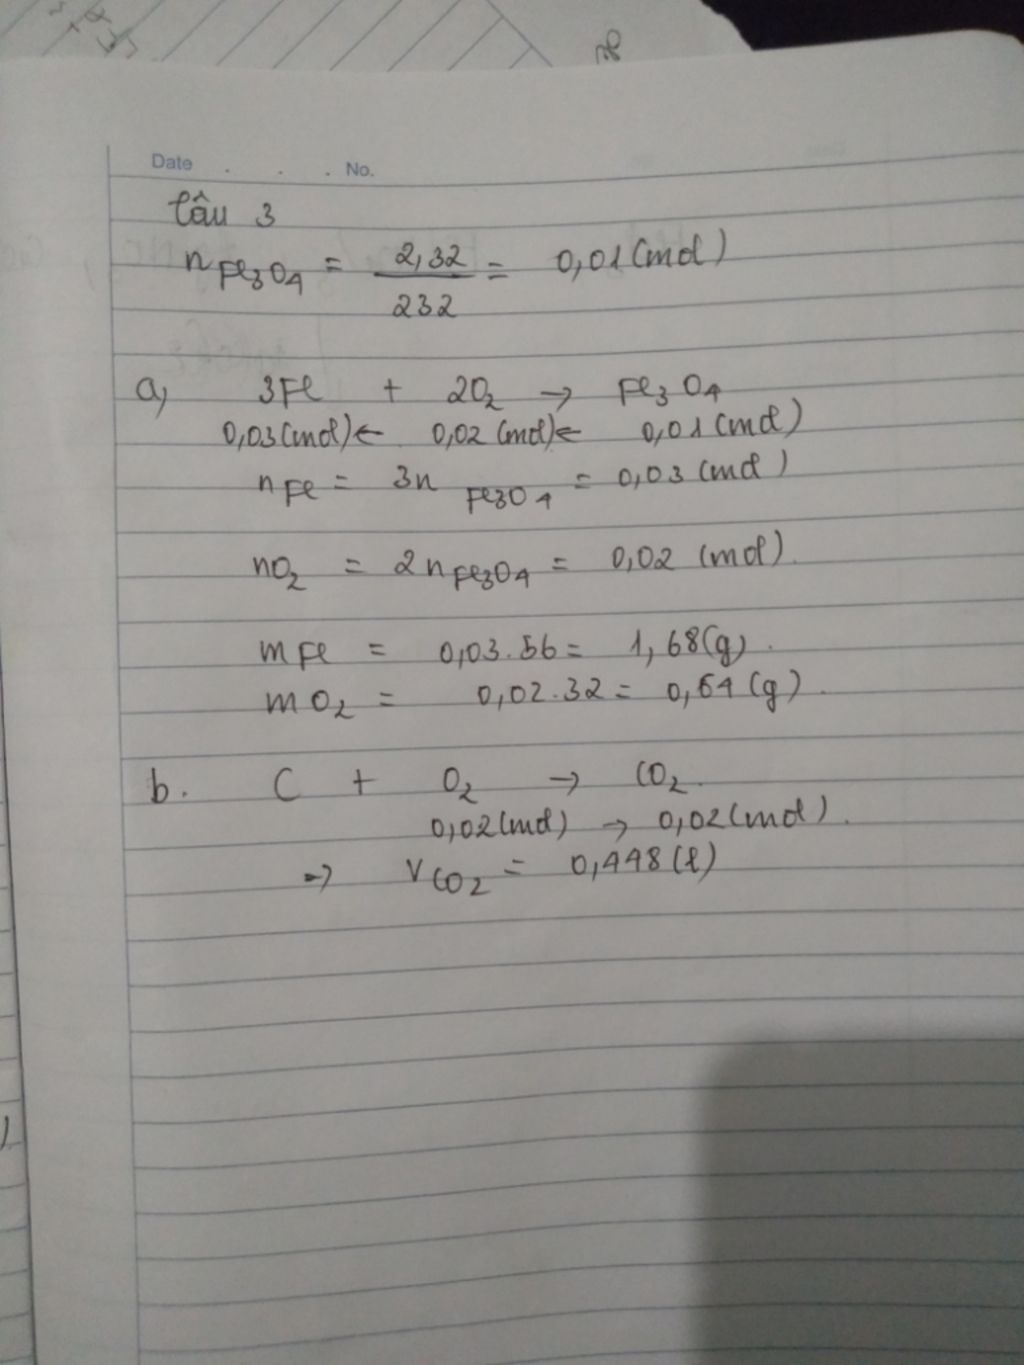 Date . . . No.
Câu 3
nFe3O4 = 2,32/232 = 0,01 (mol)
a, 3Fe + 2O2 → Fe3O4
0,03 (mol) ← 0,02 (mol) ← 0,01 (mol)
nFe = 3n Fe3O4 = 0,03 (mol)
nO2 = 2nFe3O4 = 0,02 (mol).
mFe = 0,03.56 = 1,68 (g).
mO2 = 0,02.32 = 0,64 (g).
b. C + O2 → CO2.
0,02 (mol) → 0,02 (mol).
→ VCO2 = 0,448 (l)